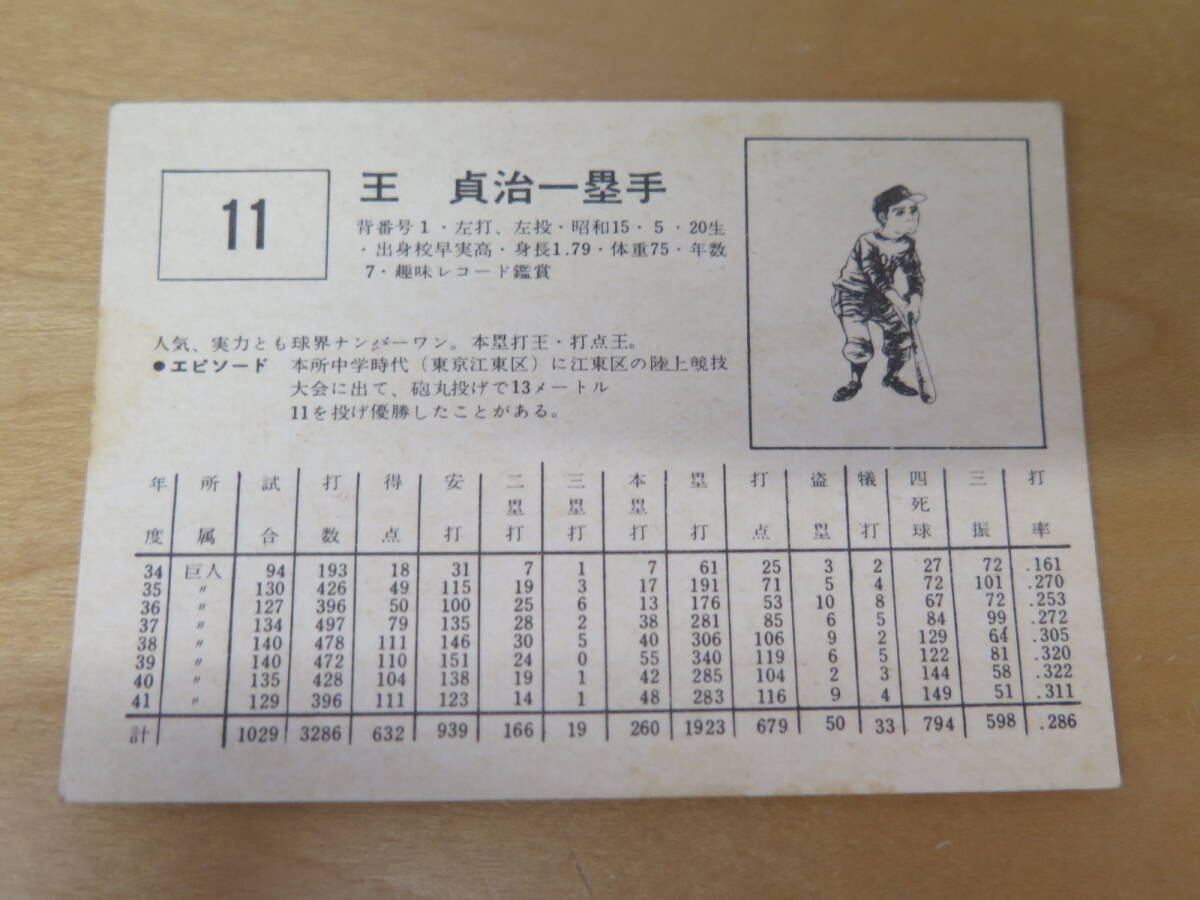 11
王 貞治一塁手
背番号1・左打、左投・昭和15・5・20生
・出身校早実高・身長1.79・体重75・年数
7・趣味レコード鑑賞
人気、実力とも球界ナンバーワン。本塁打王・打点王。
●エピソード 本所中学時代（東京江東区）に江東区の陸上競技
大会に出て、砲丸投げで13メートル
11を投げ優勝したことがある。
年度 所属 試合 打数 得点 安打 二塁打 三塁打 本塁打 塁打 打点 盗塁 犠打 四死球 三振 打率
34 巨人 94 193 18 31 7 1 7 61 25 3 2 27 72 .161
35 〃 130 426 49 115 19 3 17 191 71 5 4 72 101 .270
36 〃 127 396 50 100 25 6 13 176 53 10 8 67 72 .253
37 〃 134 497 79 135 28 2 38 281 85 6 5 84 99 .272
38 〃 140 478 111 146 30 5 40 306 106 9 2 129 64 .305
39 〃 140 472 110 151 24 0 55 340 119 6 5 122 81 .320
40 〃 135 428 104 138 19 1 42 285 104 2 3 144 58 .322
41 〃 129 396 111 123 14 1 48 283 116 9 4 149 51 .311
計 1029 3286 632 939 166 19 260 1923 679 50 33 794 598 .286